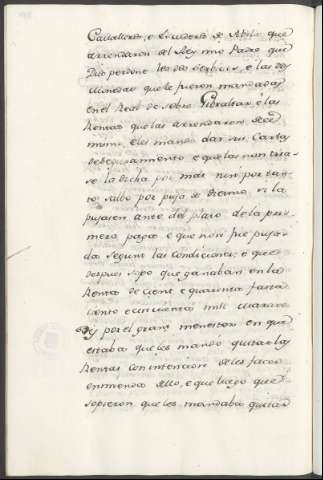 Cavalleros, e Escuderos de Abila, que
arrendaron del Rey mio Padre que
Dios perdone los dos servicios, e las dos
monedas que le fueron mandadas
en el Real de sobre Gibraltar, e las
Rentas que las arrendaron de el
mismo, e les mandó dar sus Cartas
de seguramiento e que las non tira-
se la dicha por más nin por tan-
to, salbo por puja de diezmo si la
pujasen ante del plazo de la pri-
mera paga e que non fue puja-
da segunt las condiciones, e que
despues sopo que ganaban en la
Renta de cient e quarenta fasta
ciento e cincuenta mill marave-
dis por el grant menester en que
estaba que les mandó quitar las
Rentas con intencion de les facer
enmienda dello, e que luego que
sopieron que les mandaba quitar